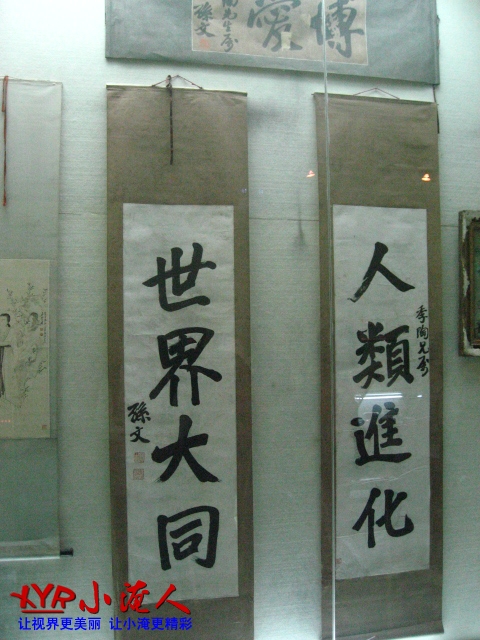 博愛
陶先生屬
孫文
人類進化
季陶兄屬
世界大同
孫文
XYP小淹人
让视界更美丽 让小淹更精彩